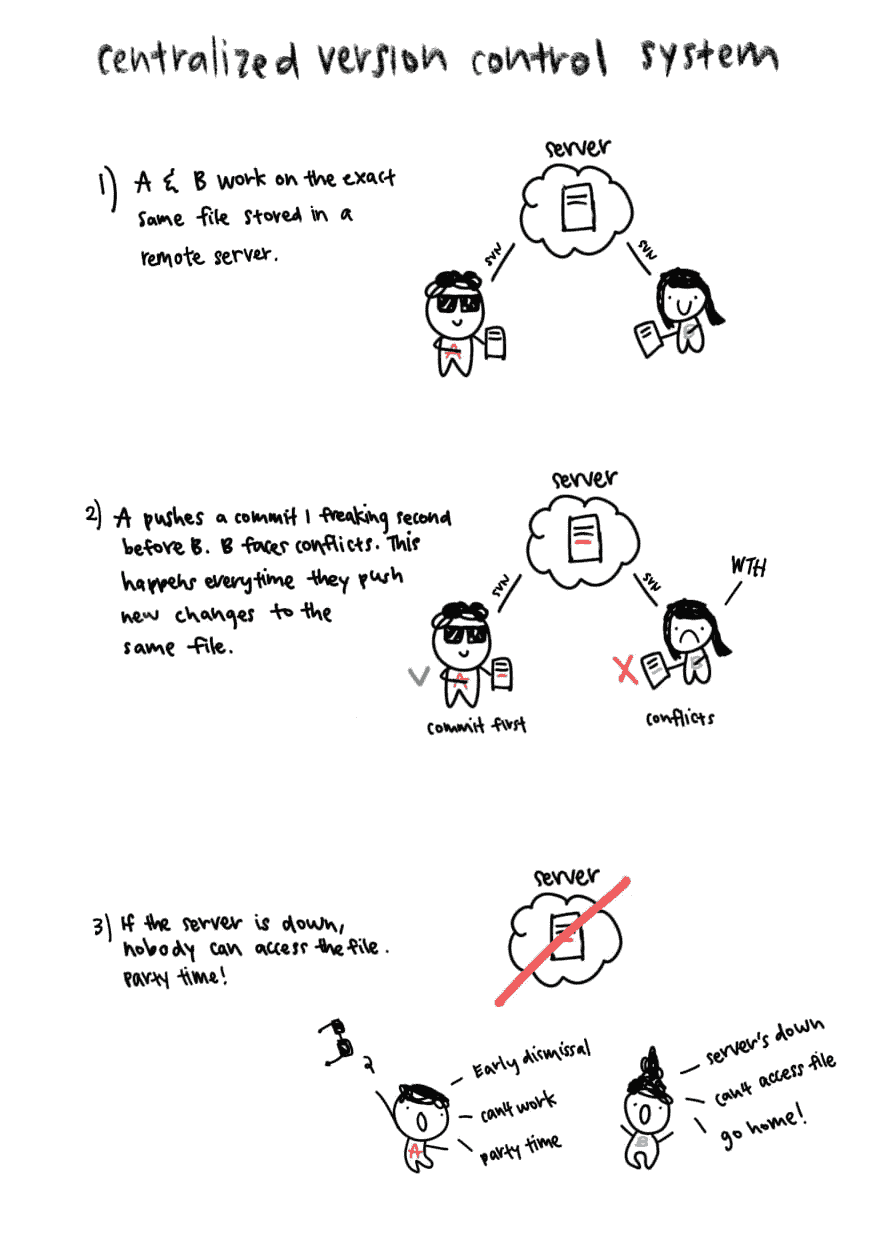 centralized version control system
server
1) A & B work on the exact
same file stored in a
remote server.
SVN
SVN
A
B
server
2) A pushes a commit 1 freaking second
before B. B faces conflicts. This
happens everytime they push
new changes to the
same file.
WTH
SVN
SVN
A
B
commit first
conflicts
server
3) If the server is down,
nobody can access the file.
party time!
Early dismissal
can't work
party time
server's down
can't access file
go home!
A
B